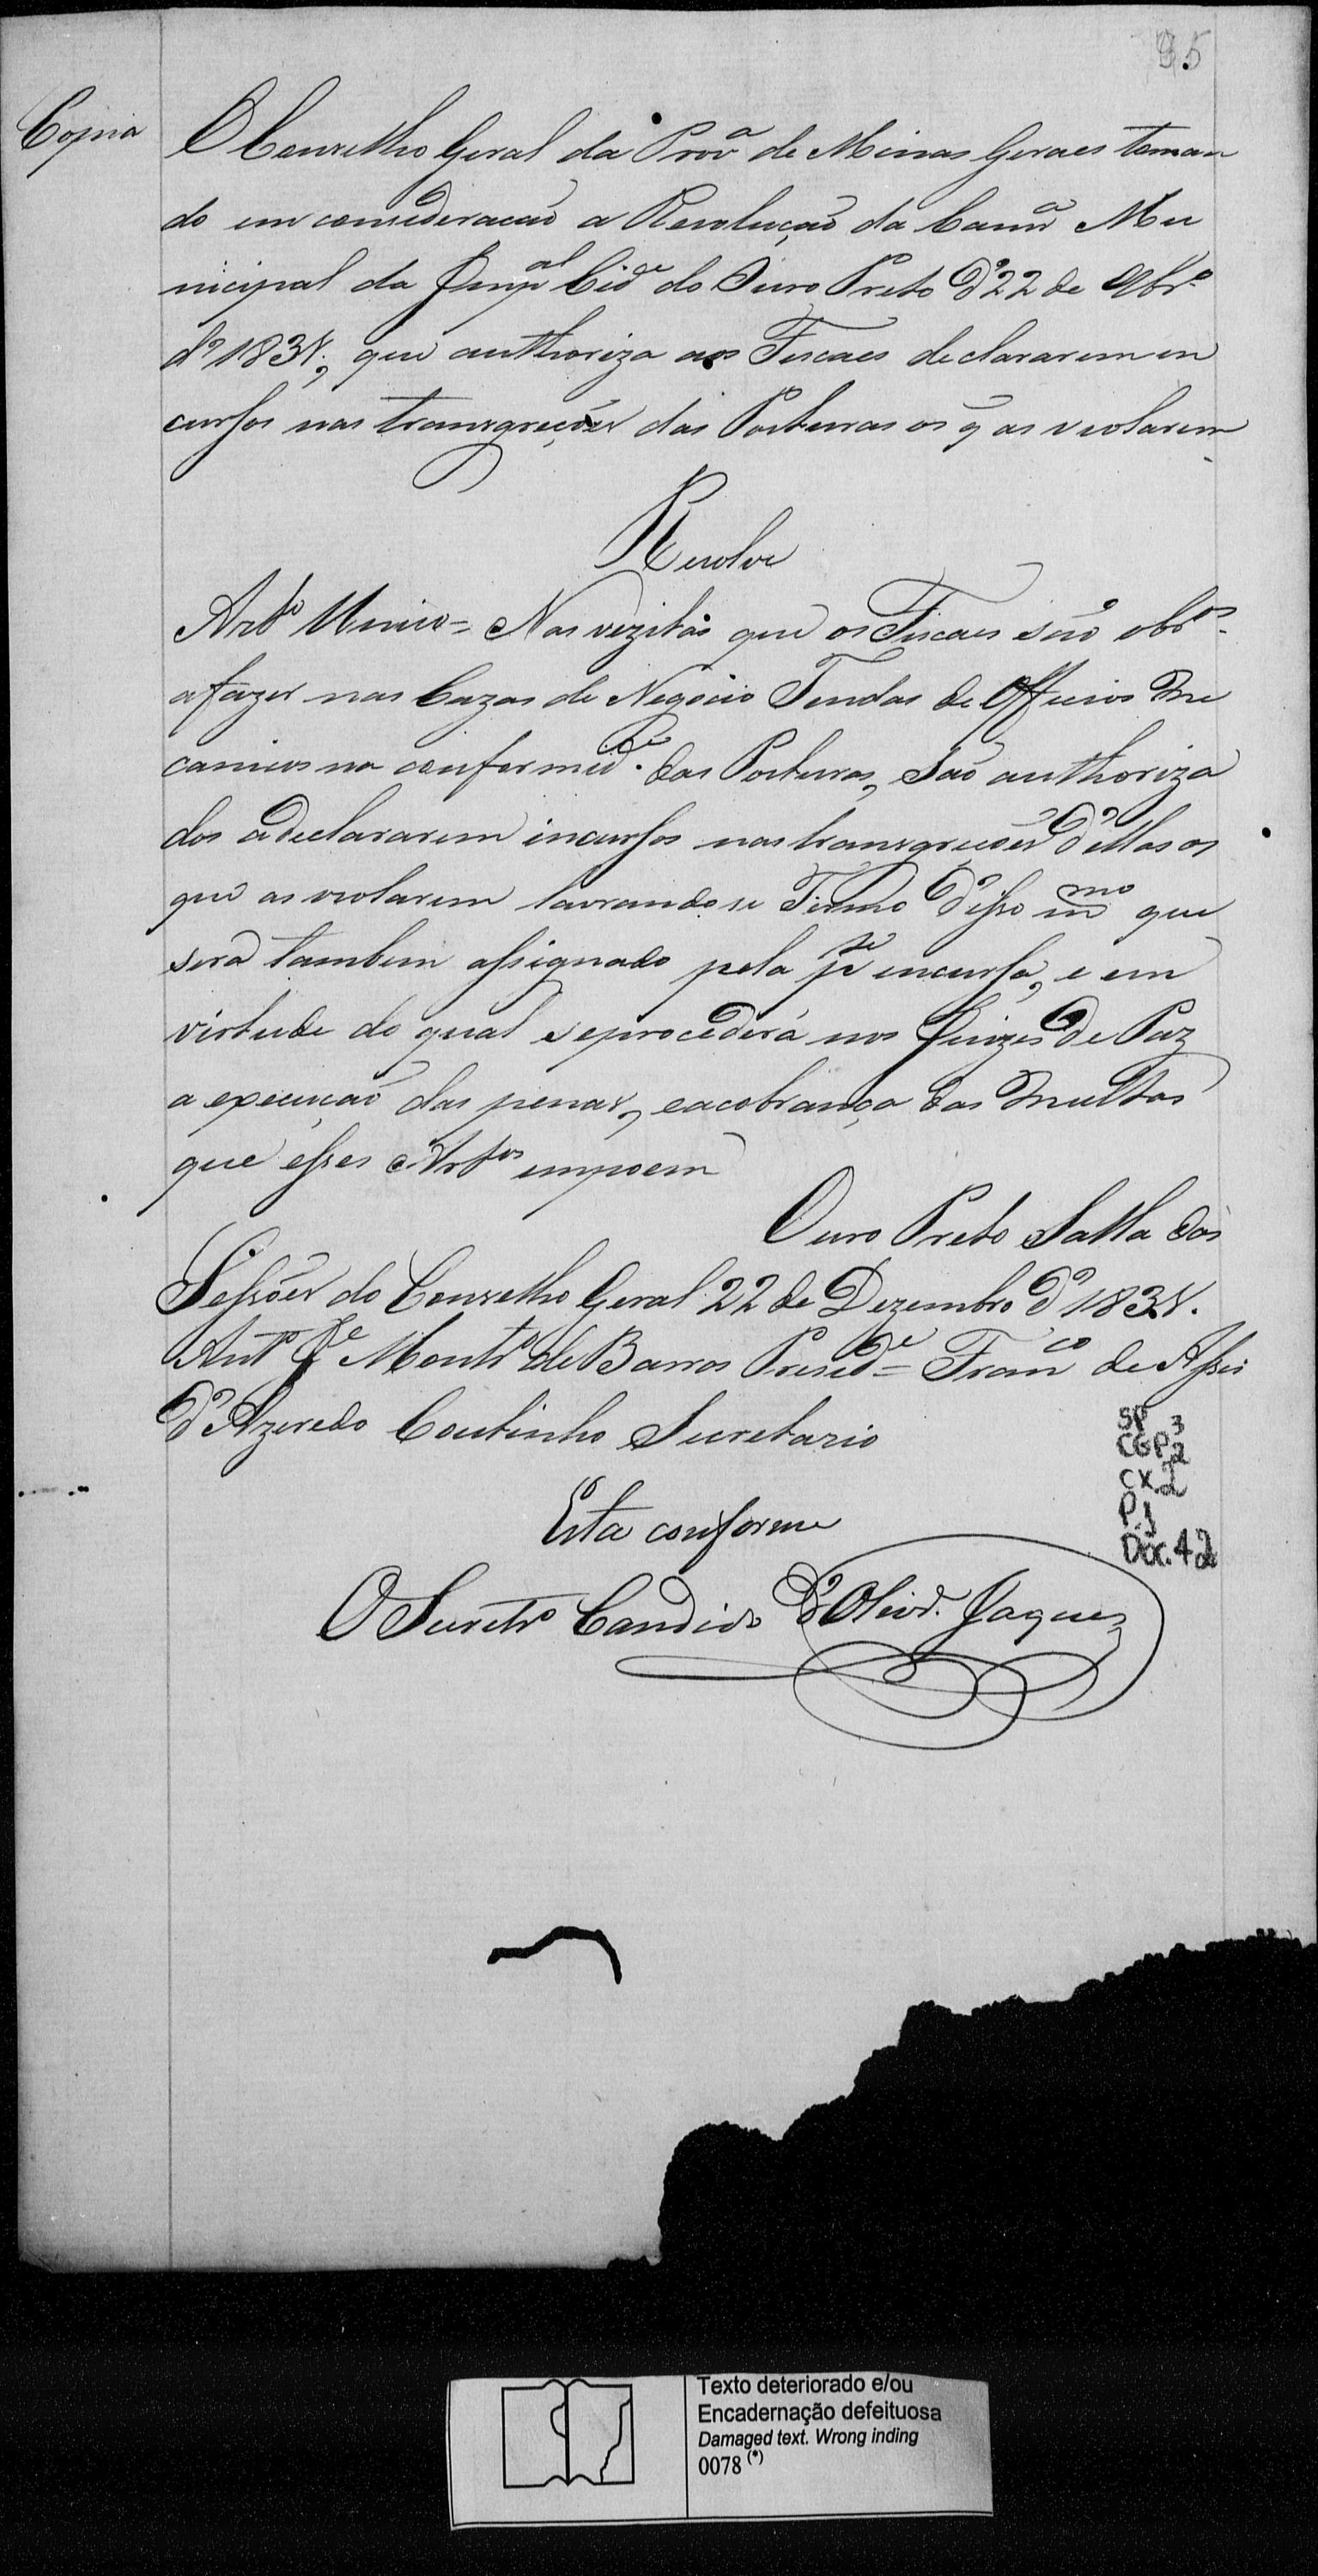 85
Copia
O Conselho Geral da Prov.ª de Minas Geraes toman
do em consideracão a Resolução da Camr.ª Mu
nicipal da Imp.al Cid.e do Ouro Preto d'22 de 9br.º
d'1831, que authoriza aos Fiscaes declararem in
cursos nas transgreções das Posturas os q as violarem
Resolve
Art.º Unico = Nas vezitas que os Fiscaes são obr.os
a fazer nas Cazas de Negocio Tendas de Officios Me
canicos na conformid.e das Posturas, são authoriza
dos a declararem incursos nas transgreções d'ellas os
que as violarem lavrando se Termo d'isso m.mo que
será tambem assignado pela p.te incursa, e em
virtude do qual se procederá nos Juizes de Paz
a execução das penas, e a cobrança das Multas
que esses Art.os impoem
Ouro Preto Salla das
Sessões do Conselho Geral 22 de Dezembro d'1831.
Ant.º J.e Montr.º de Barros Presid.e = Fran.co de Assis
d'Azeredo Coutinho Secretario
Esta conforme
O Secretr.º Candido d'Olivr.ª Jaques
SP 3
CGP 2
CX. 2
P. 1
Doc. 42
Texto deteriorado e/ou
Encadernação defeituosa
Damaged text. Wrong inding
0078 (*)